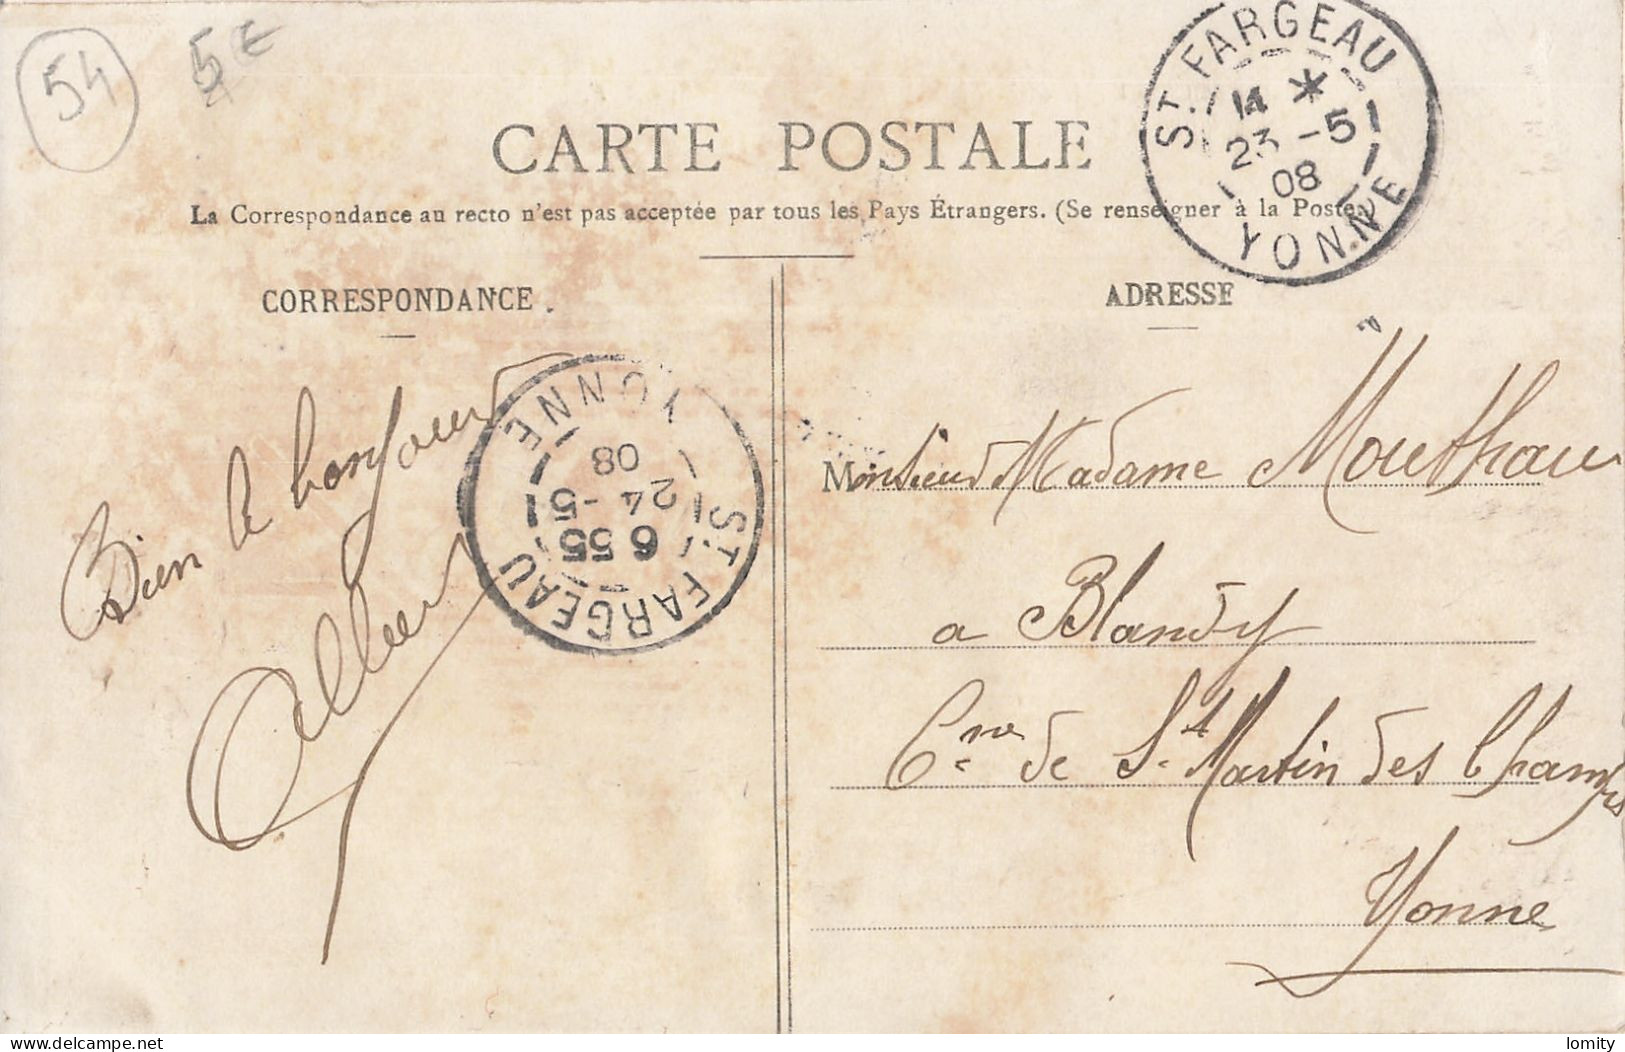 54
5€
CARTE POSTALE
La Correspondance au recto n'est pas acceptée par tous les Pays Étrangers. (Se renseigner à la Poste.)
ST. FARGEAU
14 *
23 -5
08
YONNE
CORRESPONDANCE
Bien le bonjour
Albert
ST. FARGEAU
6 55
24 -5
08
YONNE
ADRESSE
Monsieur Madame Mouthau
a Blandy
Cne de St Martin des Champs
Yonne
delcampe.net
lomity